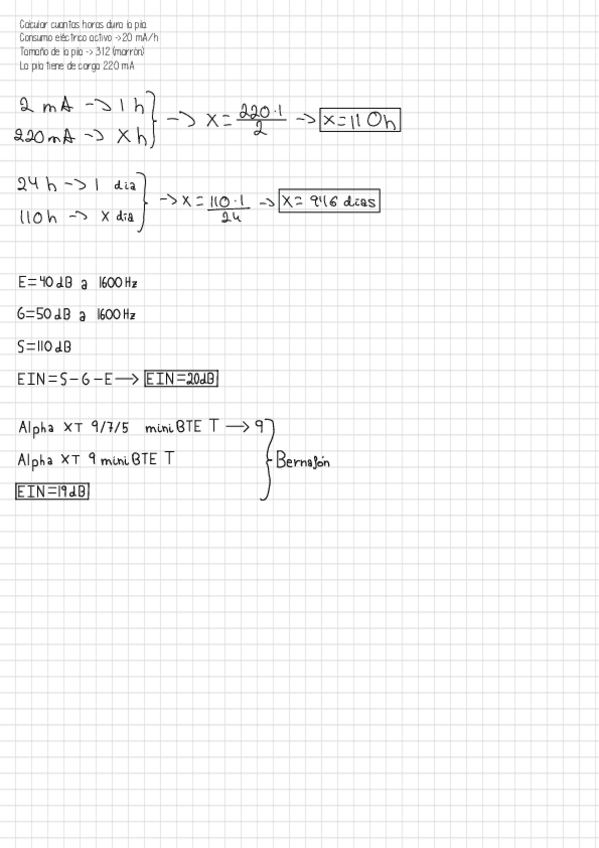 Calcular cuantas horas dura la pila
Consumo eléctrico activo -> 20 mA/h
Tamaño de la pila -> 312 (marrón)
La pila tiene de carga 220 mA
2 mA -> 1 h
220 mA -> X h
-> X = 220·1 / 2 -> X = 110h
24 h -> 1 dia
110 h -> x dia
-> X = 110·1 / 24 -> X = 4'16 dias
E=40 dB a 1600 Hz
G=50 dB a 1600 Hz
S=110 dB
EIN=S-G-E -> EIN=20dB
Alpha XT 9/7/5 mini BTE T -> 9
Alpha XT 9 mini BTE T
Bernafón
EIN=19dB